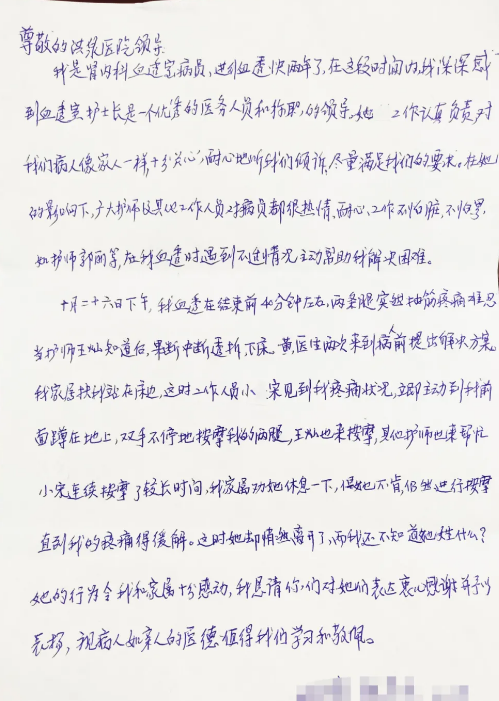 尊敬的洪泉医院领导
我是肾内科血透室病员,进行血透快两年了,在这段时间内,我深深感
到血透室护士长是一个优秀的医务人员和称职,的领导。她 工作认真负责,对
我们病人像家人一样,十分关心,耐心地听我们倾诉,尽量满足我们的要求。在她
的影响下,广大护师及其他工作人员对病员都很热情、耐心、工作不怕脏,不怕累,
如护师郭丽等,在我血透时遇到不适情况主动帮助我解决困难。
十月二十六日下午,我血透在结束前40分钟左右,两条腿突然抽筋疼痛难忍
当护师王灿知道后,果断中断透析下床。黄医生两次来到病人前提出解决方案。
我家属扶我站在床边,这时工作人员小 宋见到我疼痛状况,立即主动到我前
面蹲在地上,双手不停地按摩我的两腿,王灿也来按摩,其他护师也来帮忙
小宋连续按摩了较长时间,我家属劝她休息一下,但她不肯,仍然进行按摩
直到我的疼痛得缓解。这时她却悄然离开了,而我还不知道她姓什么?
她的行为令我和家属十分感动,我恳请你们对她们表达衷心感谢并予以
表扬,视病人如亲人的医德值得我们学习和敬佩。